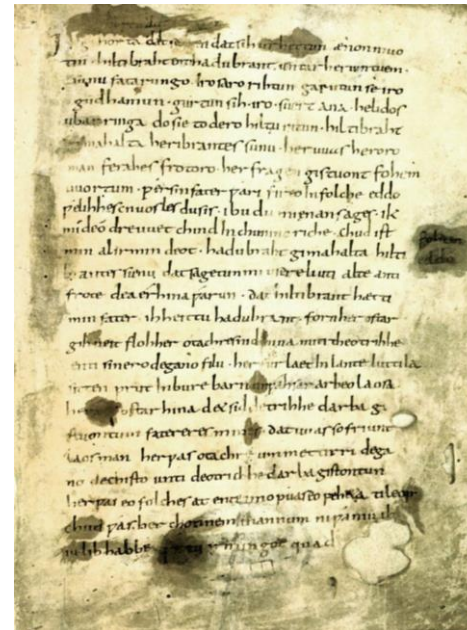 gihorta dat seggen dat sih urhettun ænon muo
tin · hiltibraht enti hadubrant · untar heriun tuem ·
sunu fatarungo · iro saro rihtun garutun se iro
gudhamun · gurtun sih · iro · suert ana · helidos
ubar ringa do sie to dero hiltu ritun · hiltibraht
gimahalta heribrantes sunu · her uuas heroro
man ferahes frotoro · her fragen gistuont fohem
uuortum · ƿer sin fater ƿari fireo In folche eddo
ƿelihhes cnuosles du sis · ibu du mi enan sages · ik
mi deo dre uuet chind In chunincriche · chud ist
min al irmin deot · hadubraht gimahalta hilti
brantes sunu dat sagetun mi usere liuti alte anti
frote dea érhina ƿarun · dat hiltibrant hætti
min fater · ih heittu hadubrant · forn her ostar
gihueit floh her otachres nid hina miti theotrihhe
enti sinero degano filu · her furlaet In lante luttila
sitten prut In bure barn unƿahsan arbeo laosa
ostar hina d& sid detrihhe darba gi
stuontum fatereres mines · dat uuas so friunt
laos man her ƿas otachre ummettirri dega
no dechisto unti deotrichhe darba gistontun
her ƿas eo folches at ente imo ƿuas eo peheta ti leop
chud ƿas her chonnem mannum ni ƿaniu ih
iu lib habbe irmingot quad